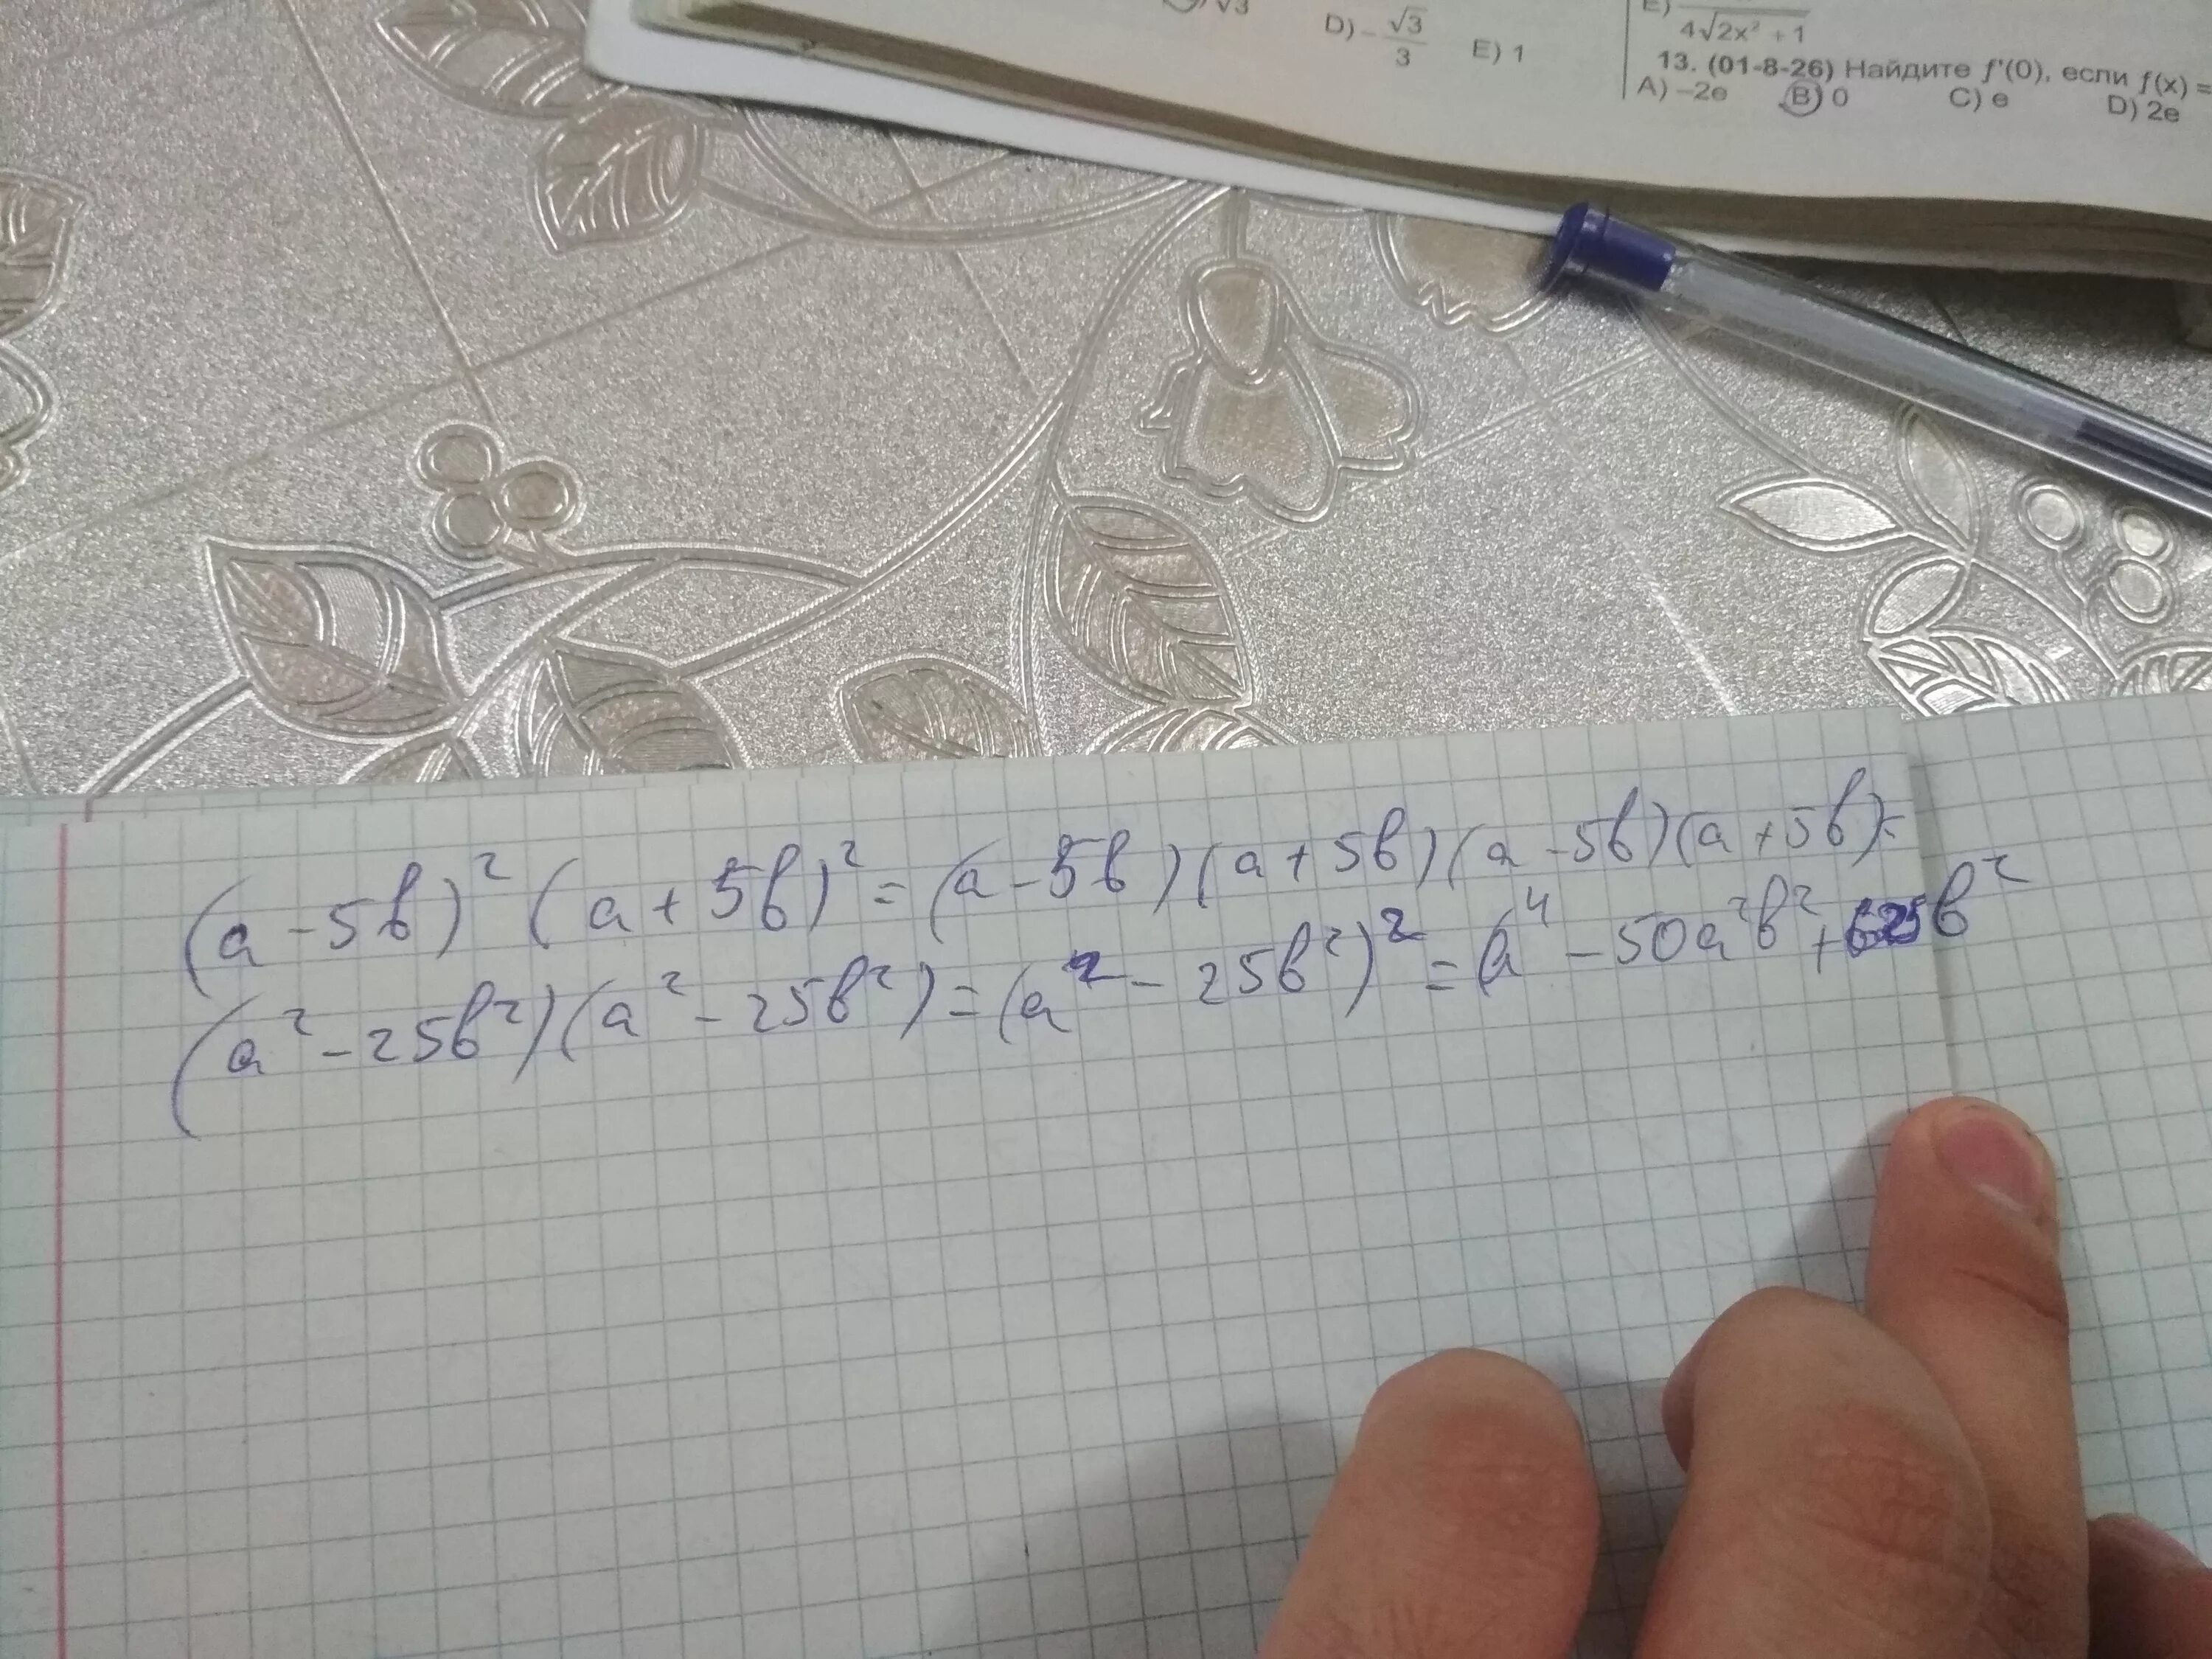 √3
D) -√3/3 E) 1
E) 4√2x² + 1
13. (01-8-26) Найдите f'(0), если f(x) =
A) –2e B) 0 C) e D) 2e
(a - 5b)² (a + 5b)² = (a - 5b)(a + 5b)(a - 5b)(a + 5b) =
(a² - 25b²)(a² - 25b²) = (a² - 25b²)² = a⁴ - 50a²b² + 625b²